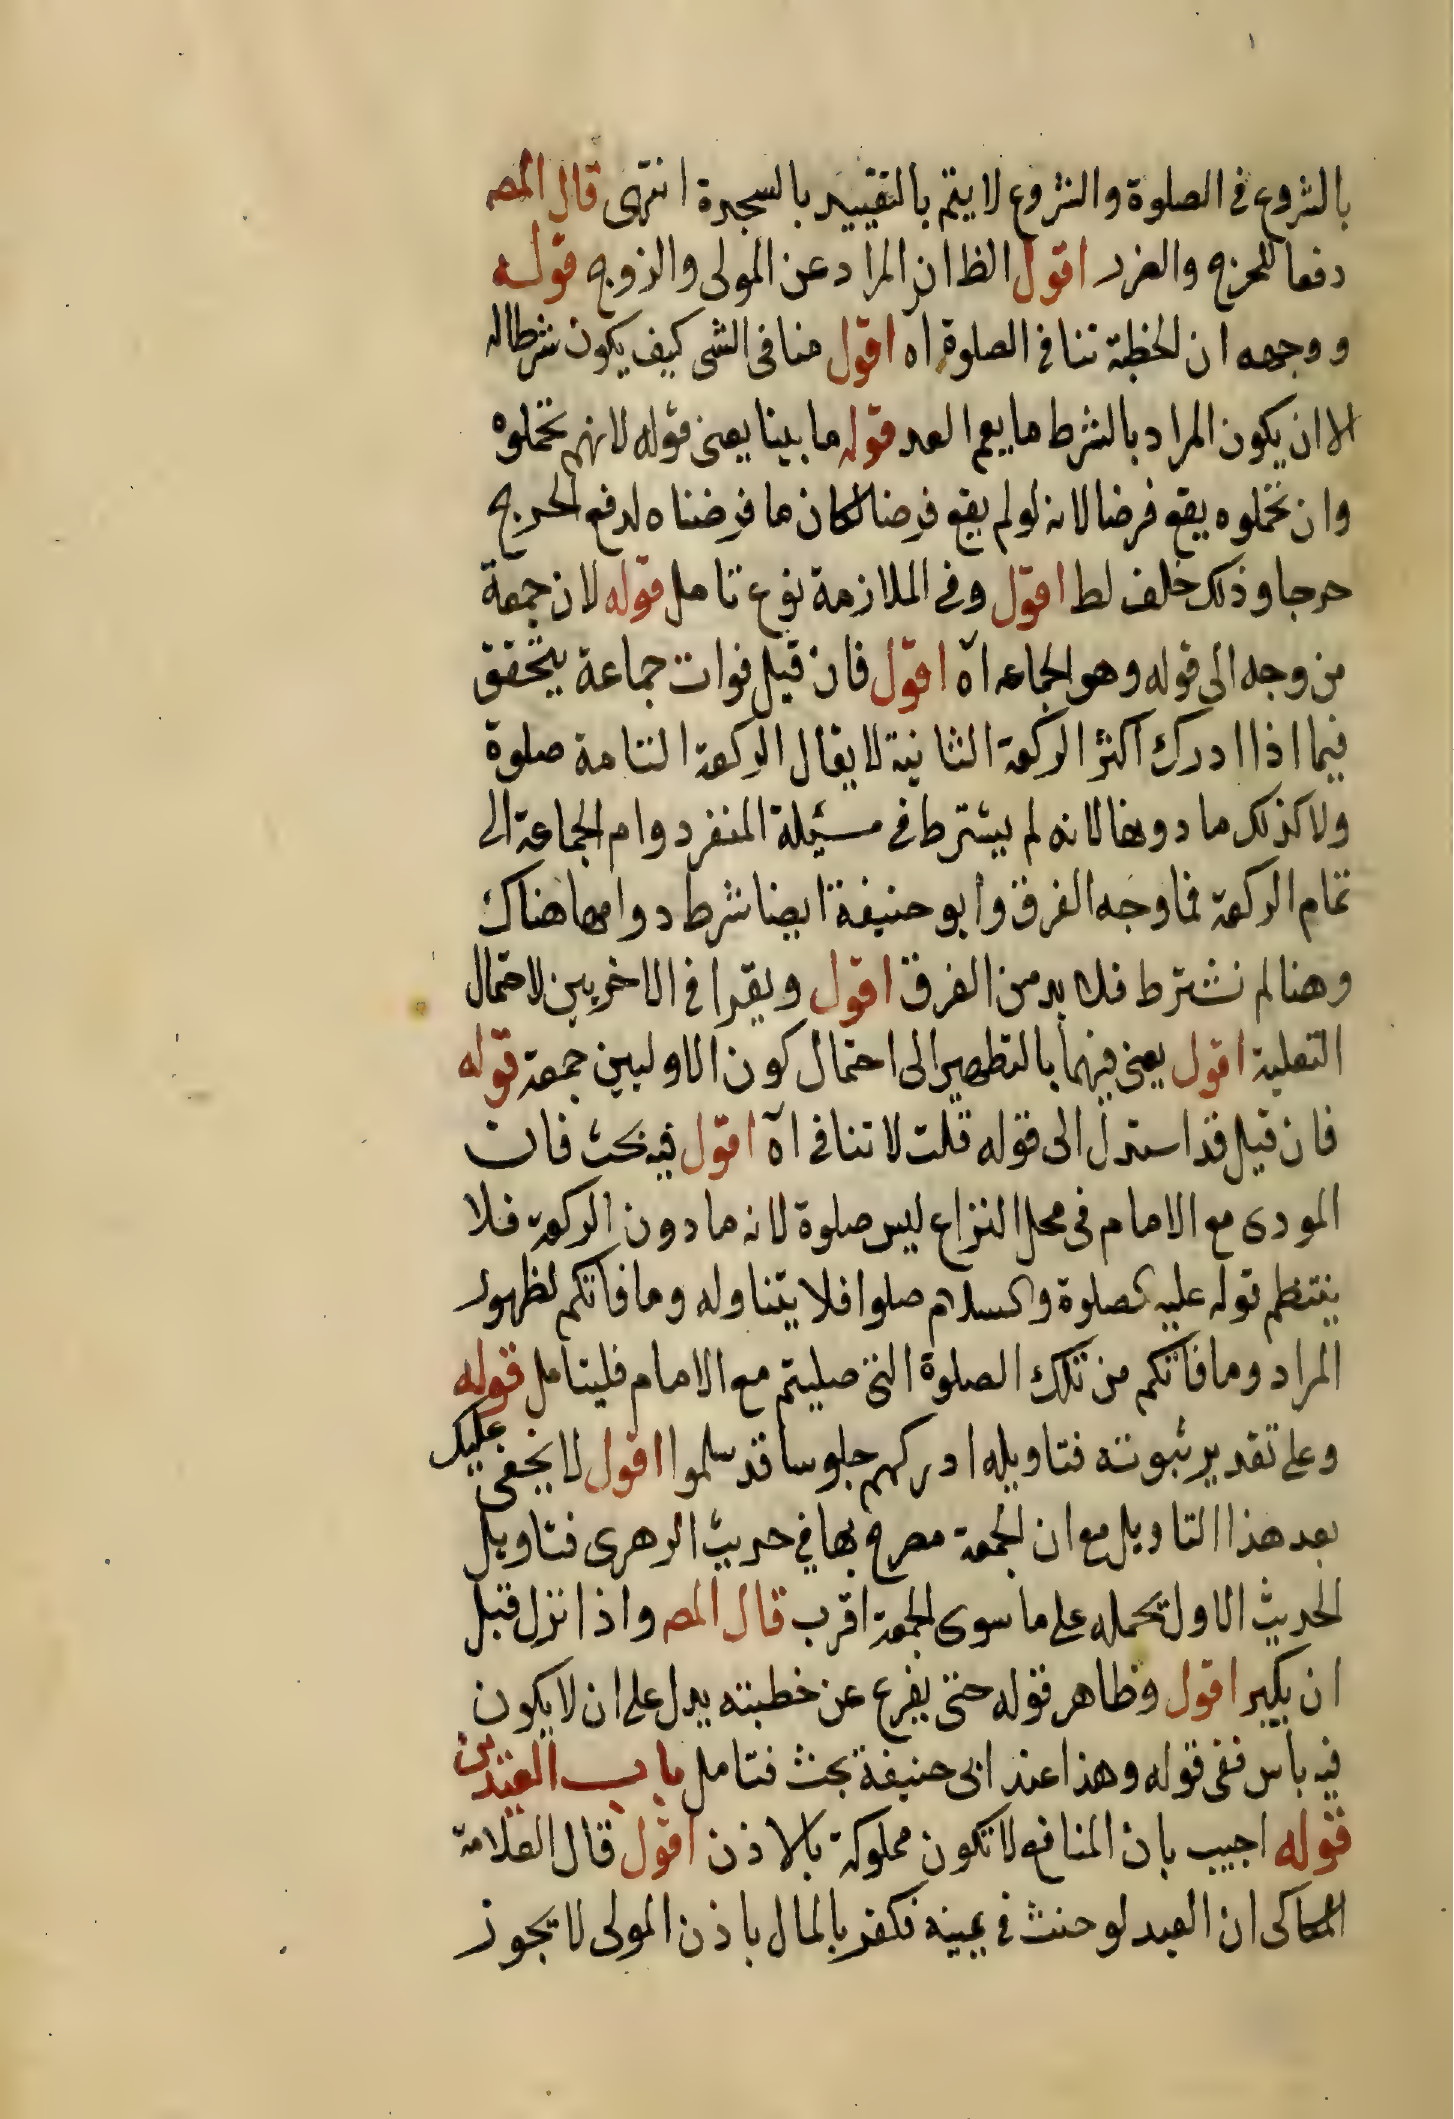 بالشروع فى الصلوة والشروع لا يتم بالتقييد بالسجدة انتهى قال المص
دفعا للحرج والضرر اقول الظ ان المراد عن المولى والزوج قوله
ووجهه ان الخطبة تنافى الصلوة اه اقول منافى الشى كيف يكون شرطا له
الا ان يكون المراد بالشرط ما يعم المعد قوله ما بينا يعنى قوله لانهم تحملوه
وان تحملوه يقع فرضا لانه لو لم يقع فرضا لكان ما فرضناه لدفع الحرج
حرجا وذلك خلف لط اقول وفى الملازمة نوع تامل قوله لان جمعة
من وجه الى قوله وهو الجماعه آه اقول فان قيل فوات جماعة يتحقق
فيما اذا ادرك اكثر الركعة الثانية لا يقال الركعة التامة صلوة
ولا كذلك ما دونها لانه لم يشترط فى مسئلة المنفرد دوام الجماعة الى
تمام الركعة فما وجه الفرق وابو حنيفة ايضا شرط دوامها هناك
وهنا لم نشترط فلا بد من الفرق اقول ويقرا فى الاخريين لاحتمال
النفلية اقول يعنى فيهما بالنظر الى احتمال كون الاوليين جمعة قوله
فان قيل قد استدل الى قوله قلت لا تنافى آه اقول فيه بحث فان
المودى مع الامام فى محل النزاع ليس صلوة لانه ما دون الركعة فلا
ينتظم قوله عليه الصلوة والسلام صلوا فلا يتناوله وما فاتكم لظهور
المراد وما فاتكم من تلك الصلوة التى صليتم مع الامام فليتامل قوله
وعلى تقدير ثبوته فتاويله ادركهم جلوسا قد سلموا اقول لا يخفى عليك
بعد هذا التاويل مع ان الجمعة مصرح بها فى حديث الزهرى فتاويل
الحديث الاول بحمله على ما سوى الجمعة اقرب قال المص واذا نزل قبل
ان يكبر اقول وظاهر قوله حتى يفرغ من خطبته يدل على ان لا يكون
فيه باس ففى قوله وهذا عند ابى حنيفة بحث فتامل باب العيدين
قوله اجيب بان المنافع لا تكون مملوكة بالاذن اقول قال العلامة
الكاكى ان العبد لو حنث فى يمينه فكفر بالمال باذن المولى لا يجوز